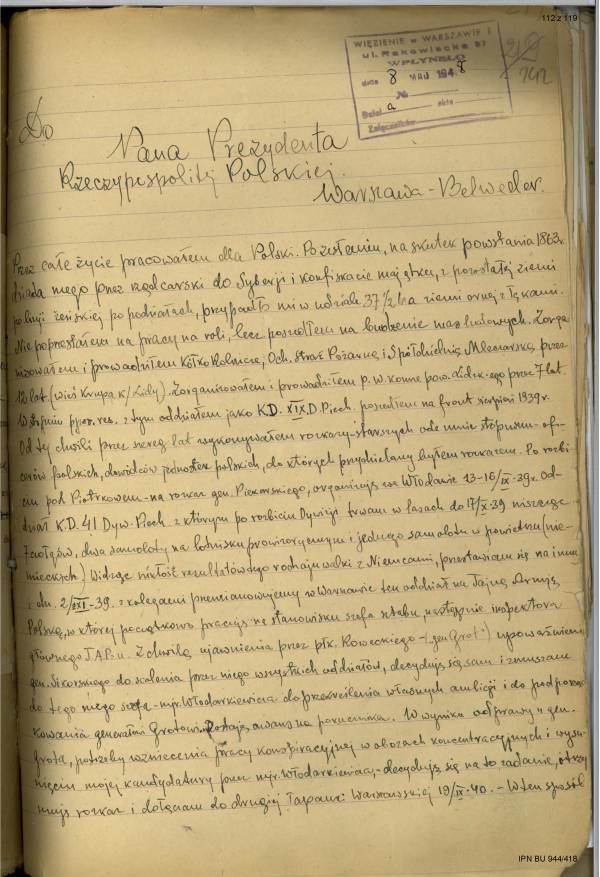 112 z 119
WIĘZIENIE w WARSZAWIE I
ul. Rakowiecka 37
WPŁYNĘŁO
dnia 8 MAJ 1948
№
Dział a akta
Załączników
212
Do
Pana Prezydenta
Rzeczypospolitej Polskiej.
Warszawa-Belweder.
Przez całe życie pracowałem dla Polski. Po zesłaniu, na skutek powstania 1863r.
dziada mego przez rząd carski do Syberji i konfiskacie majątku, z pozostałej ziemi
po linji żeńskiej po podziałach, przypadło mi w udziale 37 1/2 ha ziemi ornej z łąkami.
Nie poprzestałem na pracy na roli, lecz poszedłem na budzenie mas ludowych. Zorga
nizowałem i prowadziłem Kółko Rolnicze, Och. Straż Pożarną i Spółdzielnię Mleczarską przez
12 lat. (wieś Krupa k/ Lidy). Zorganizowałem i prowadziłem p.w. konne pow. Lidzk-ego przez 7 lat.
W stopniu ppor. res. z tym oddziałem jako K.D. XIX D. Piech. poszedłem na front sierpień 1939r.
Od tej chwili przez szereg lat wykonywałem rozkazy starszych ode mnie stopniem ofi-
cerów polskich, dowódców jednostek polskich, do których przydzielany byłem rozkazem. Po rozbi
ciu pod Piotrkowem - na rozkaz gen. Piekarskiego, organizuję we Włodawie 13-16/IX-39r. od-
dział K.D. 41 Dyw. Piech. z którym po rozbiciu Dywizji trwam w lasach do 17/X-39 niszcząc
7 czołgów, dwa samoloty na lotnisku prowizorycznym i jednego samolotu w powietrzu (nie-
mieckich). Widząc nikłość rezultatów tego rodzaju walki z Niemcami, przestawiam się na inną
i dn. 2/XI-39. z kolegami przemianowujemy w Warszawie ten oddział na Tajną Armję
Polską, w której początkowo pracuję na stanowisku szefa sztabu, następnie inspektora
głównego T.A.P.-u. Z chwilą ujawnienia przez płk. Roweckiego - (gen Grot) upoważnienia
gen. Sikorskiego do scalenia przez niego wszystkich oddziałów, decyduję się sam i zmuszam
do tego mego szefa - mjr. Włodarkiewicza do przekreślenia własnych ambicji i do podporząd
kowania generała Grotowi. Dostaję awans na porucznika. W wyniku odprawy u gen.
Grota, potrzeby wzniecenia pracy konspiracyjnej w obozach koncentracyjnych i wysu
nięciu mojej kandydatury przez mjr. Włodarkiewicza, - decyduję się na to zadanie, otrzy
muję rozkaz i dołączam do drugiej łapanki Warszawskiej 19/IX-40. - W ten sposób
IPN BU 944/418